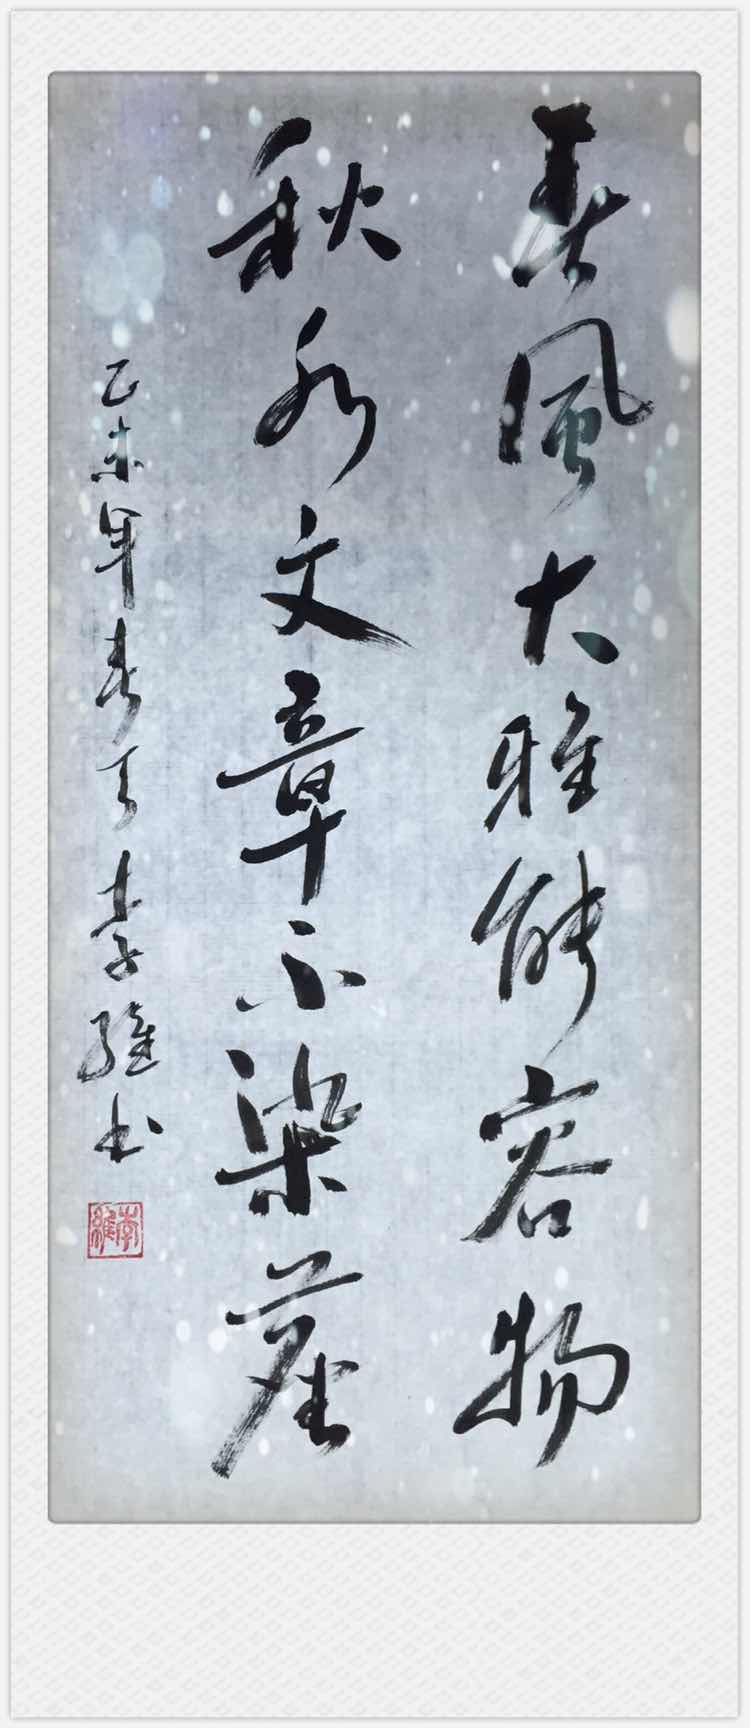 春風大雅能容物
秋水文章不染塵
乙未年春月李維书
李維